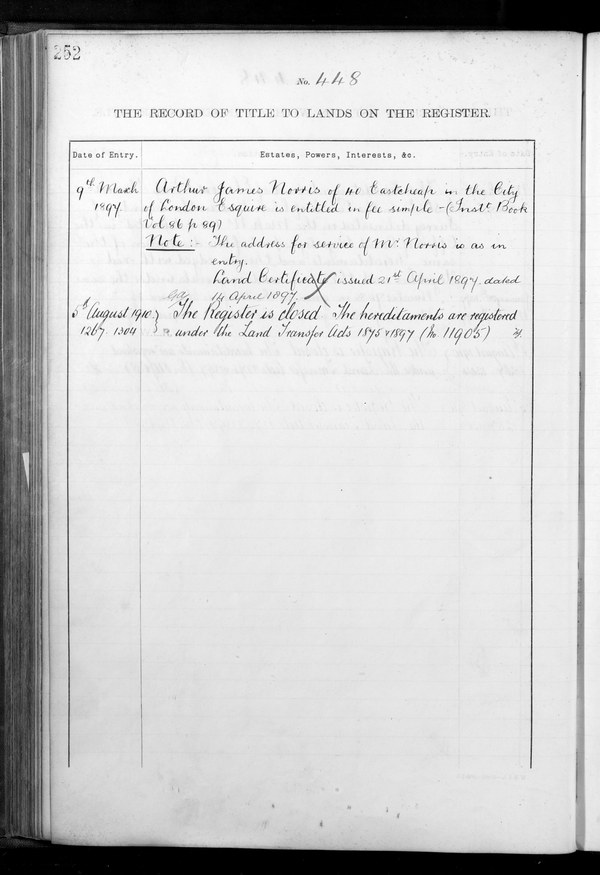 252
No. 448
THE RECORD OF TITLE TO LANDS ON THE REGISTER.
Date of Entry. Estates, Powers, Interests, &c.
9th March Arthur James Norris of 40 Eastcheap in the City
1897 of London Esquire is entitled in fee simple - (Inst. Book
Vol 86 p 89)
Note:- The address for service of Mr. Norris is as in
entry.
Land Certificate issued 21st April 1897. dated
14 April 1897.
5th August 1910 The Register is closed The hereditaments are registered
1267. 1304 under the Land Transfer Acts 1875 & 1897 (In 11905)